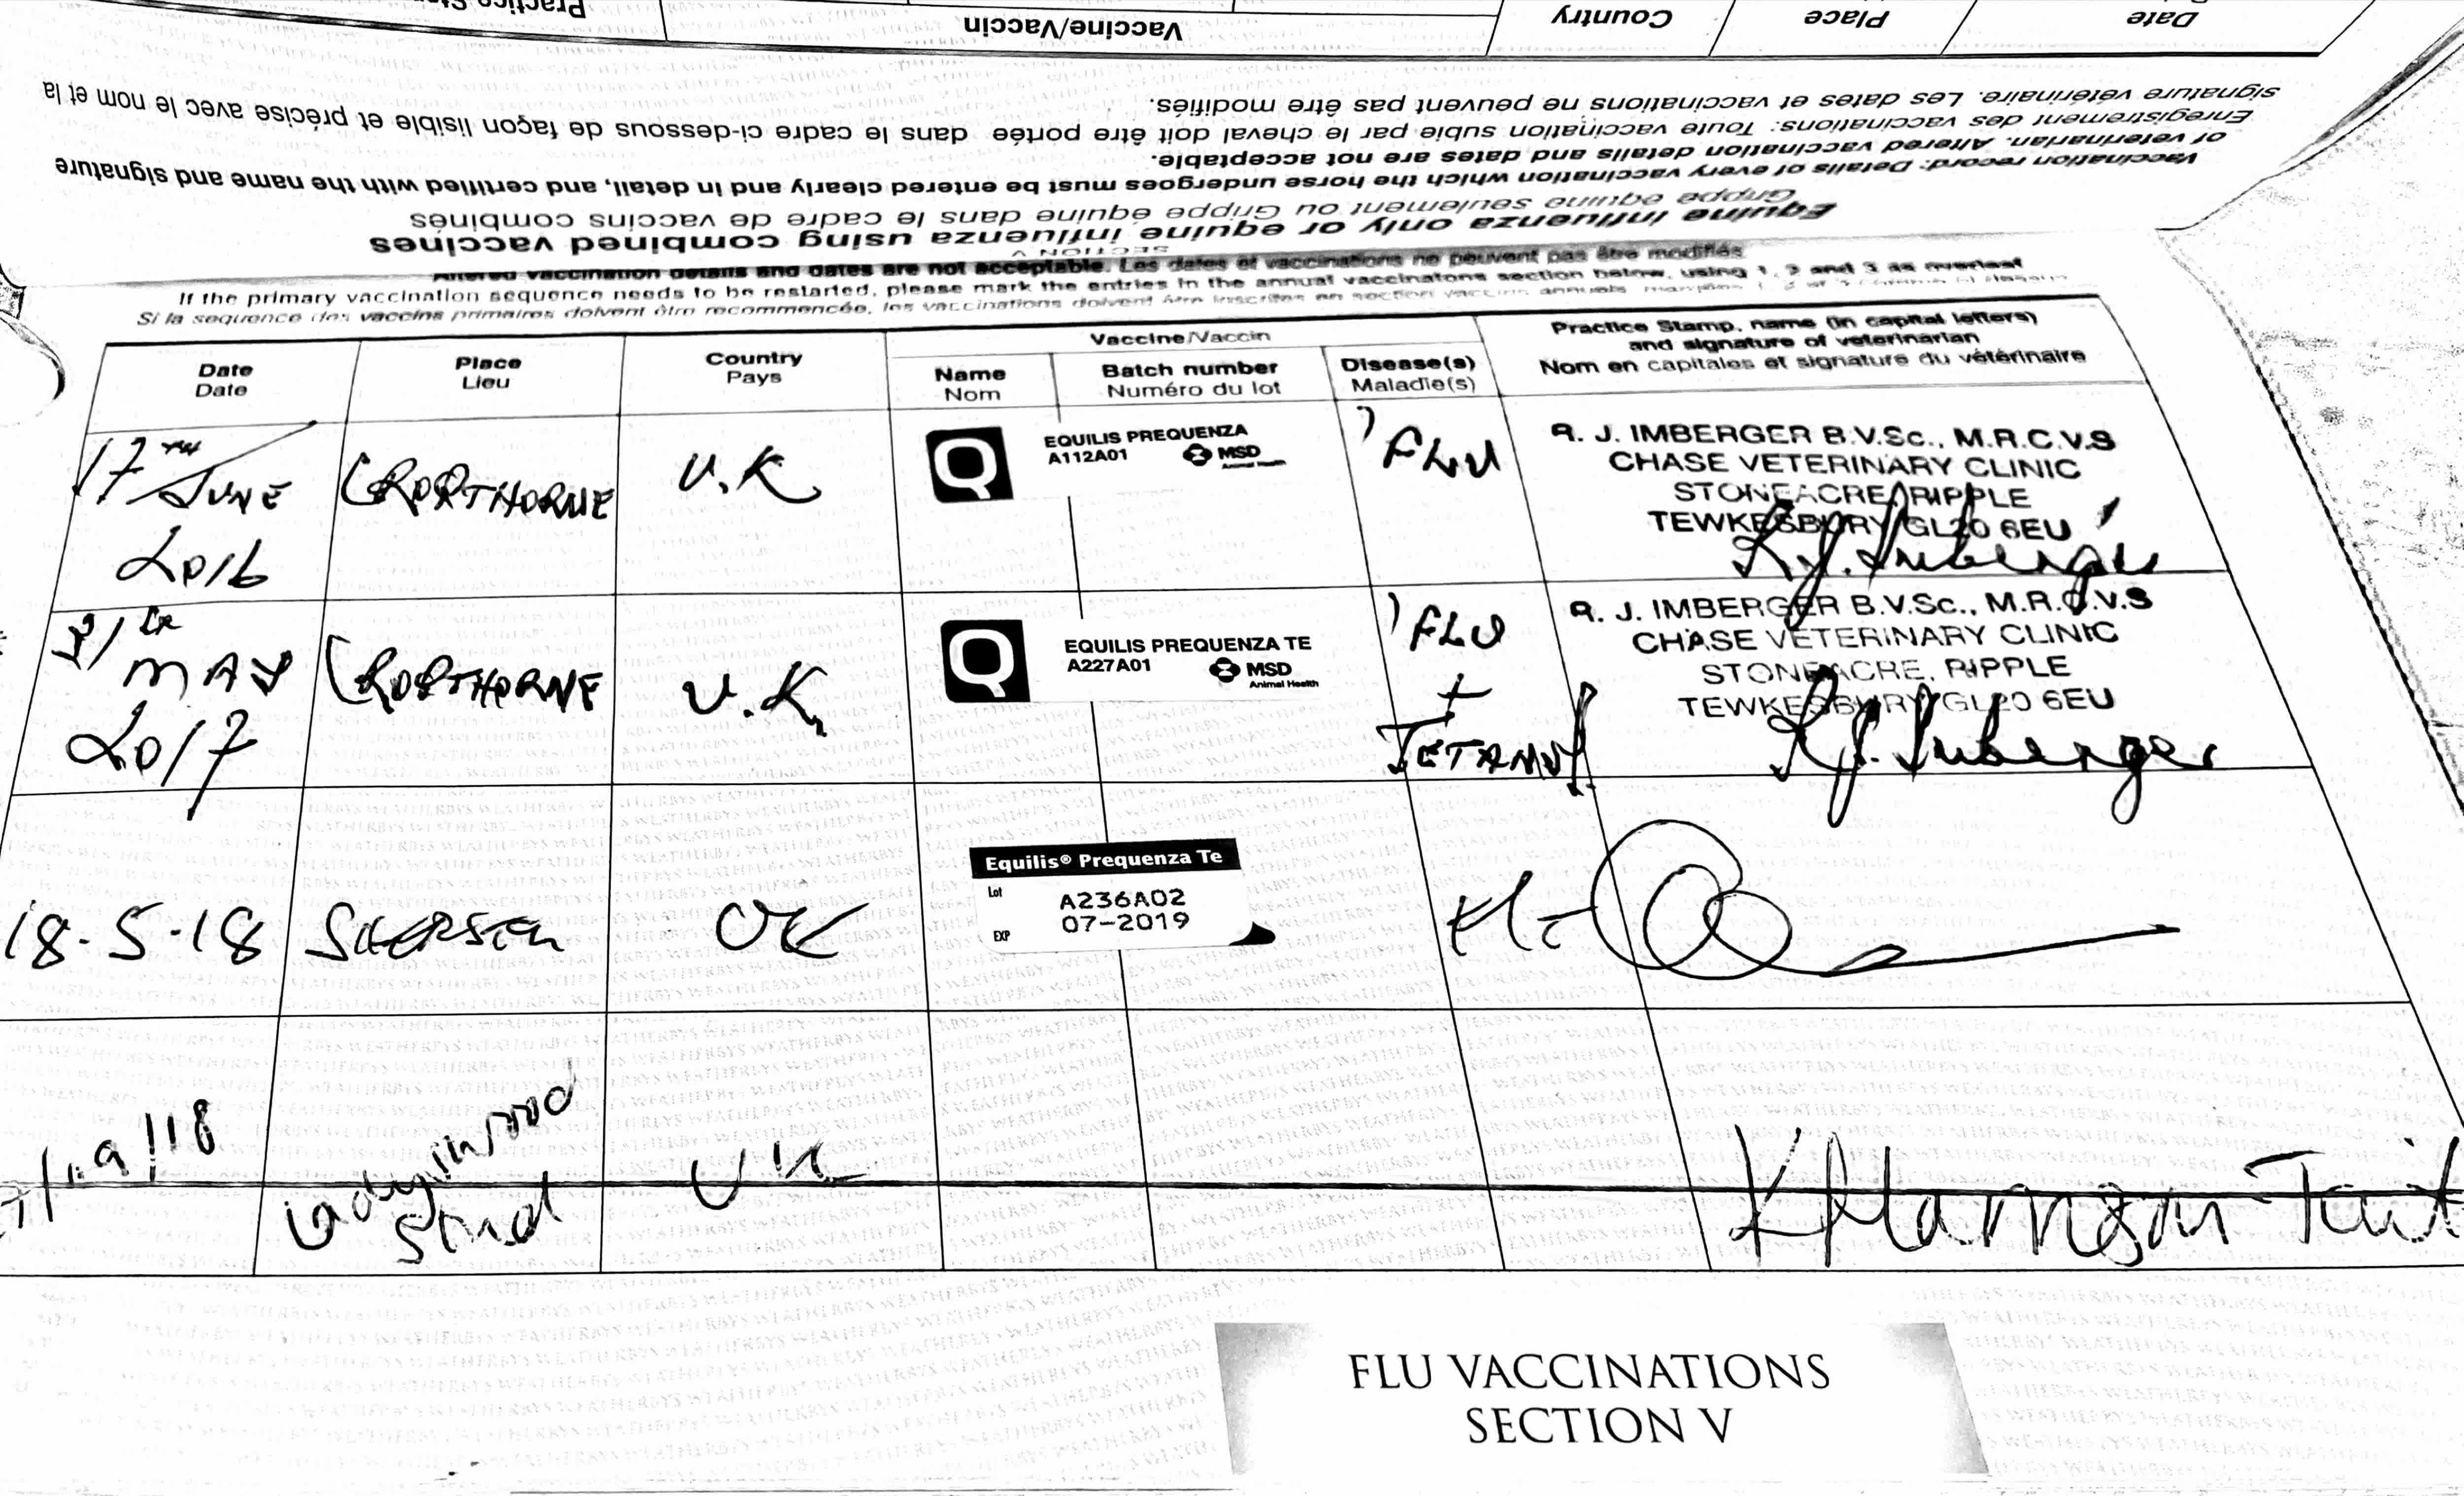 Practice
Vaccine/Vaccin
Country
Place
Date
Equine influenza only or equine influenza using combined vaccines
Grippe équine seulement ou Grippe équine dans le cadre de vaccins combinés
Vaccination record: Details of every vaccination which the horse undergoes must be entered clearly and in detail, and certified with the name and signature
of veterinarian. Altered vaccination details and dates are not acceptable.
Enregistrement des vaccinations: Toute vaccination subie par le cheval doit être portée dans le cadre ci-dessous de façon lisible et précise avec le nom et la
signature vétérinaire. Les dates et vaccinations ne peuvent pas être modifiés.
Altered vaccination details and dates are not acceptable. Les dates et vaccinations ne peuvent pas être modifiés
If the primary vaccination sequence needs to be restarted, please mark the entries in the annual vaccinatons section below, using 1, 2 and 3 as overleaf
Si la sequence des vaccins primaires doivent être recommencée, les vaccinations doivent être inscrites en section vaccins annuels
Date
Date
Place
Lieu
Country
Pays
Vaccine/Vaccin
Name
Nom
Batch number
Numéro du lot
Disease(s)
Maladie(s)
Practice Stamp, name (in capital letters)
and signature of veterinarian
Nom en capitales et signature du vétérinaire
17TH JUNE
2016
CROPTHORNE
U.K
EQUILIS PREQUENZA
A112A01
MSD
Animal Health
FLU
R. J. IMBERGER B.V.Sc., M.R.C.V.S
CHASE VETERINARY CLINIC
STONEACRE, RIPPLE
TEWKESBURY GL20 6EU
R.J. Imberger
MAY
2017
CROPTHORNE
U.K.
EQUILIS PREQUENZA TE
A227A01
MSD
Animal Health
FLU
+
TETANUS
R. J. IMBERGER B.V.Sc., M.R.C.V.S
CHASE VETERINARY CLINIC
STONEACRE, RIPPLE
TEWKESBURY GL20 6EU
R.J. Imberger
18-5-18
UK
Equilis® Prequenza Te
Lot A236A02
EXP 07-2019
Ladywood
Stud
UK
K Harrison-Tait
FLU VACCINATIONS
SECTION V